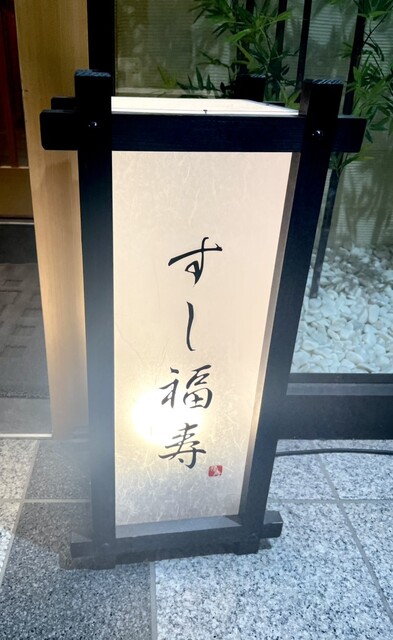 すし福寿